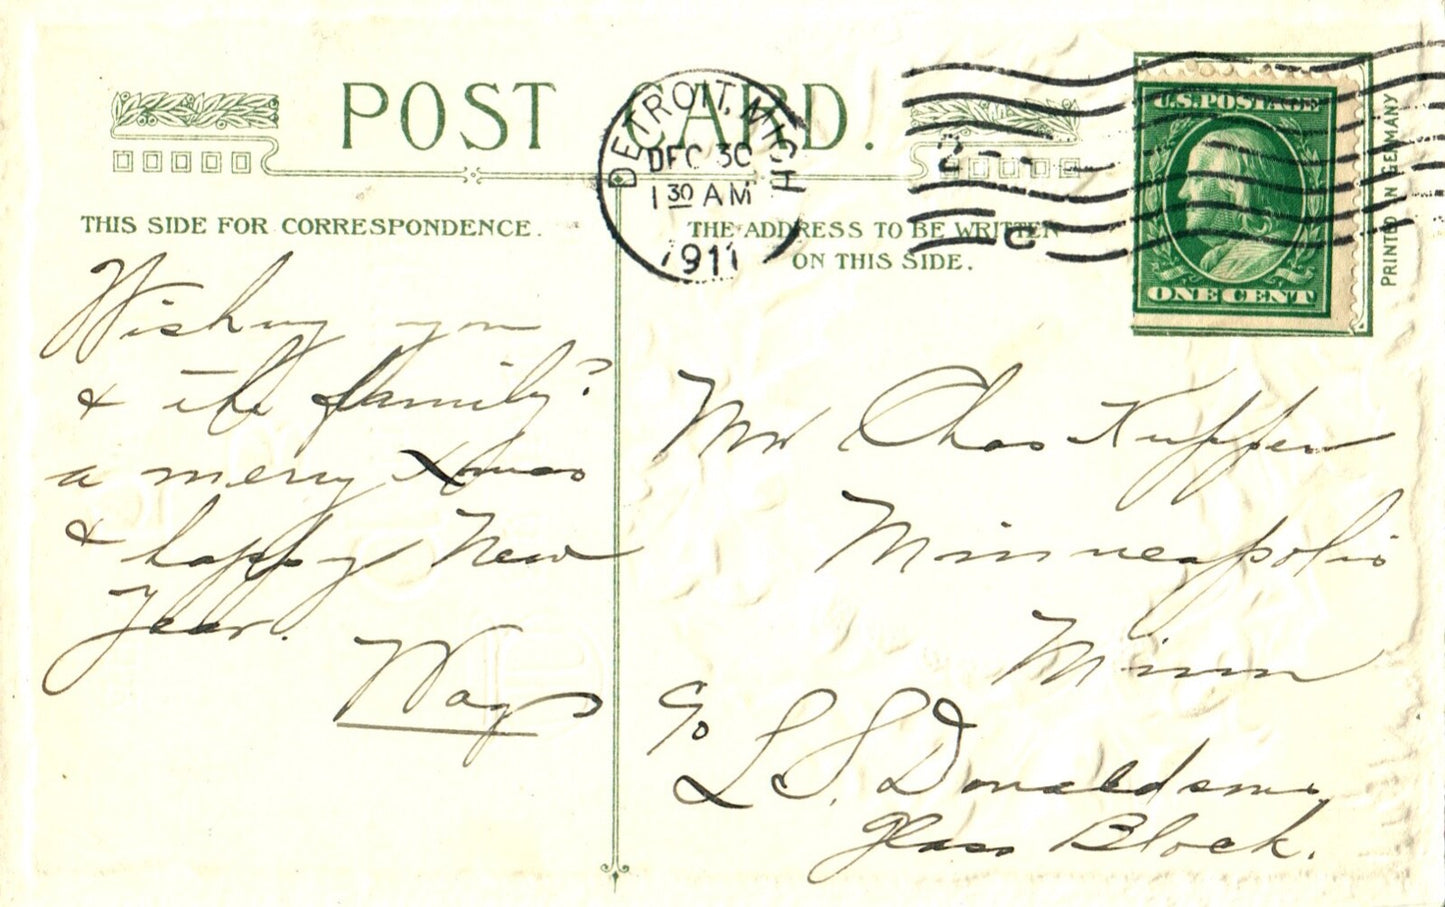 POST CARD.
DETROIT, MICH
DEC 30
1 30 AM
1911
2
C
U.S. POSTAGE
ONE CENT
PRINTED IN GERMANY
THIS SIDE FOR CORRESPONDENCE.
THE ADDRESS TO BE WRITTEN
ON THIS SIDE.
Wishing you
& the family?
a merry Xmas
& happy New
Year.
Wags
Mr Chas Kupfer
Minneapolis
Minn
c/o
L S. Donaldsons
Glass Block.